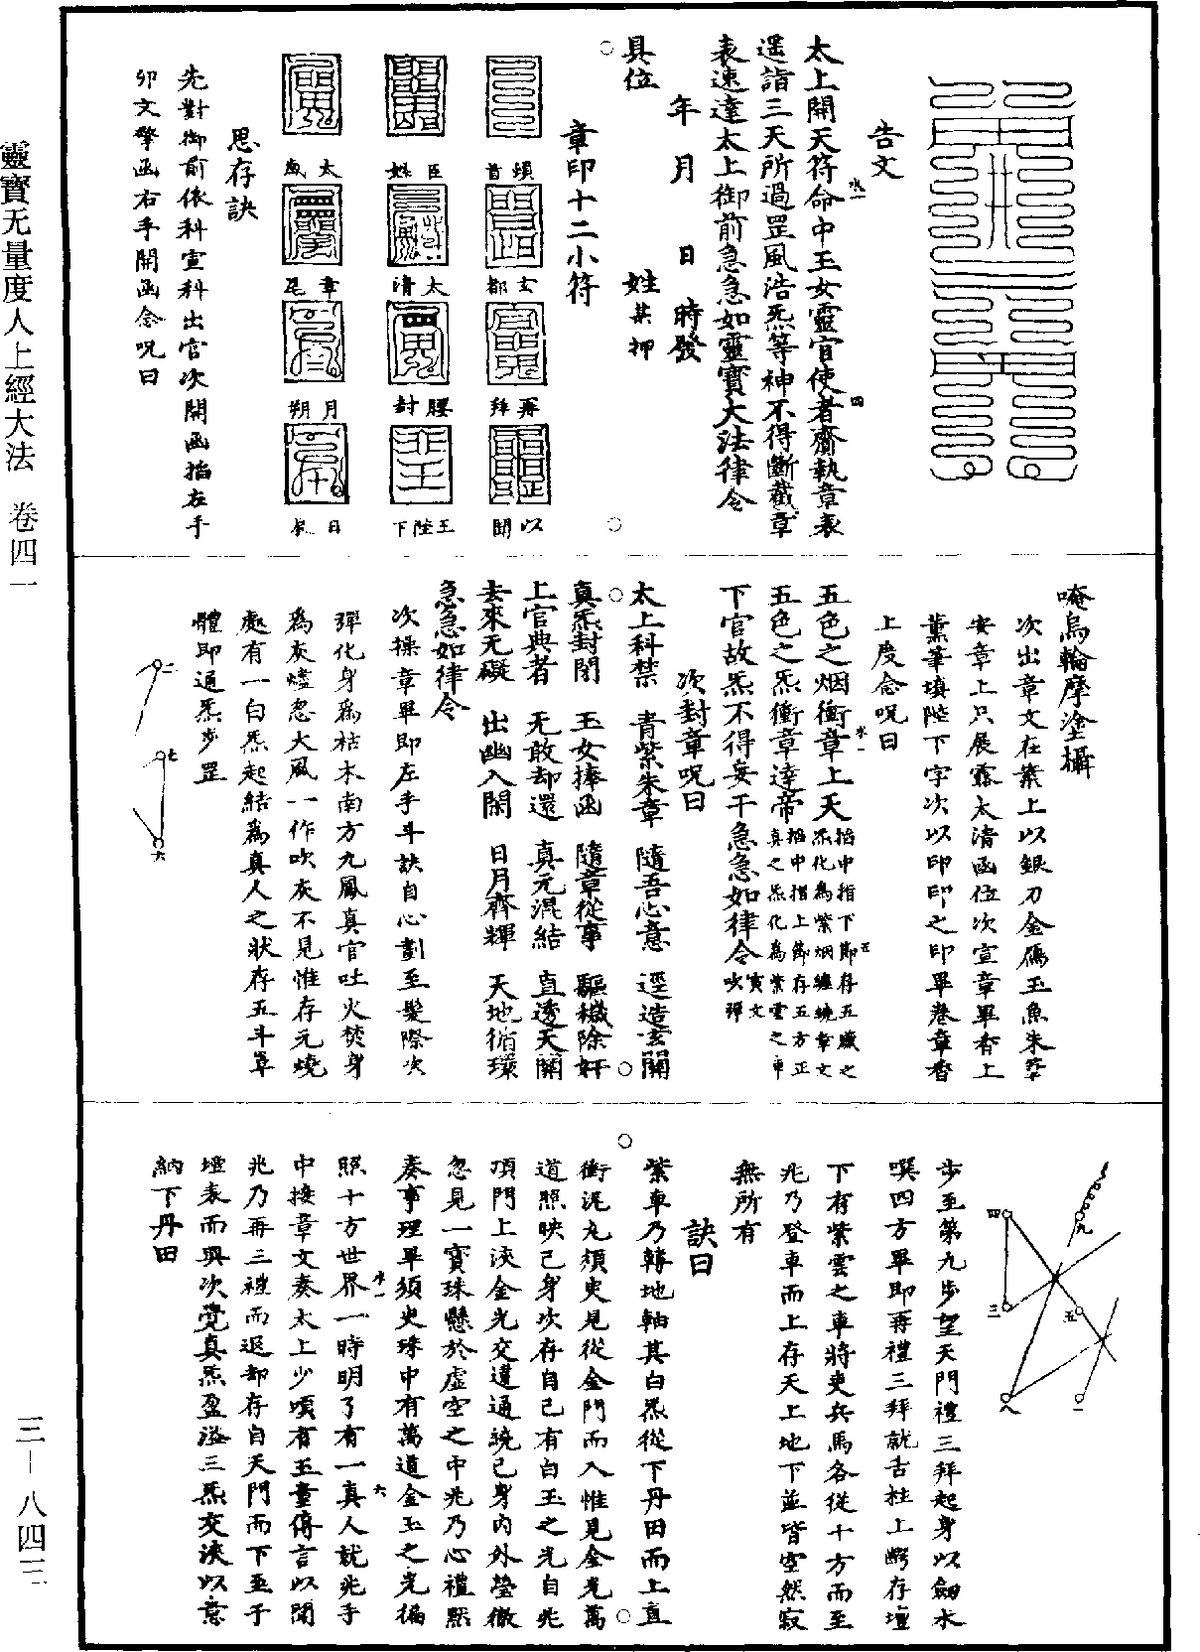 告文
太上開天符命中王女靈官使者齎執章表
遥詣三天所過罡風浩炁等神不得斷截章
表速達太上御前急急如靈寶大法律令
年 月 日 時發
具位 姓某押
章印十二小符
頭首
玄都
再拜
以聞
臣姓
太清
腰封
王陛下
太歲
章尾
月朔
日辰
思存訣
先對御前依科宣科出官次開函掐左手
卯文擎函右手開函念呪曰
唵烏輪摩塗攝
次出章文在案上以銀刀金鴈玉魚朱筆
安章上只展露太清函位次宣章畢香上
薰筆填陛下字次以印印之印畢卷章香
上度念呪曰
五色之烟衝章上天掐中指下節存五臟之炁化為紫烟纏繞章文
五色之炁衝章達帝掐中指上節存五方正真之炁化為紫雲之車
下官故炁不得妄干急急如律令寅文吹彈
次封章呪曰
太上科禁 青紫朱章 隨吾心意 逕造玄關
真炁封閉 玉女捧函 隨章從事 驅穢除奸
上官典者 无敢却還 真元混結 直透天關
去來无礙 出幽入閑 日月齊輝 天地循環
急急如律令
次操章畢即左手斗訣自心劃至髮際次
彈化身為枯木南方九鳳真官吐火焚身
為灰燼忽大風一作吹灰不見惟存元燒
處有一白炁起結為真人之狀存五斗罩
體即通炁步罡
二
七
六
九
四
三
五
八
一
步至第九步望天門禮三拜起身以劒水
噀四方畢即再禮三拜就舌柱上腭存壇
下有紫雲之車將吏兵馬各從十方而至
兆乃登車而上存天上地下並皆空然寂
無所有
訣曰
紫車乃轉地軸其白炁從下丹田而上直
衝泥丸須臾見從金門而入惟見金光萬
道照映己身次存自己有白玉之光自兆
頂門上浹金光交遘通繞己身內外瑩徹
忽見一寶珠懸於虛空之中兆乃心禮默
奏事理畢須臾珠中有萬道金玉之光徧
照十方世界一時明了有一真人就兆手
中接章文奏太上少頃有玉童傳言以聞
兆乃再三禮而退却存自天門而下至于
壇表而興次覺真炁盈溢三炁交浹以意
納下丹田
靈寶无量度人上經大法 卷四一
三－八四三